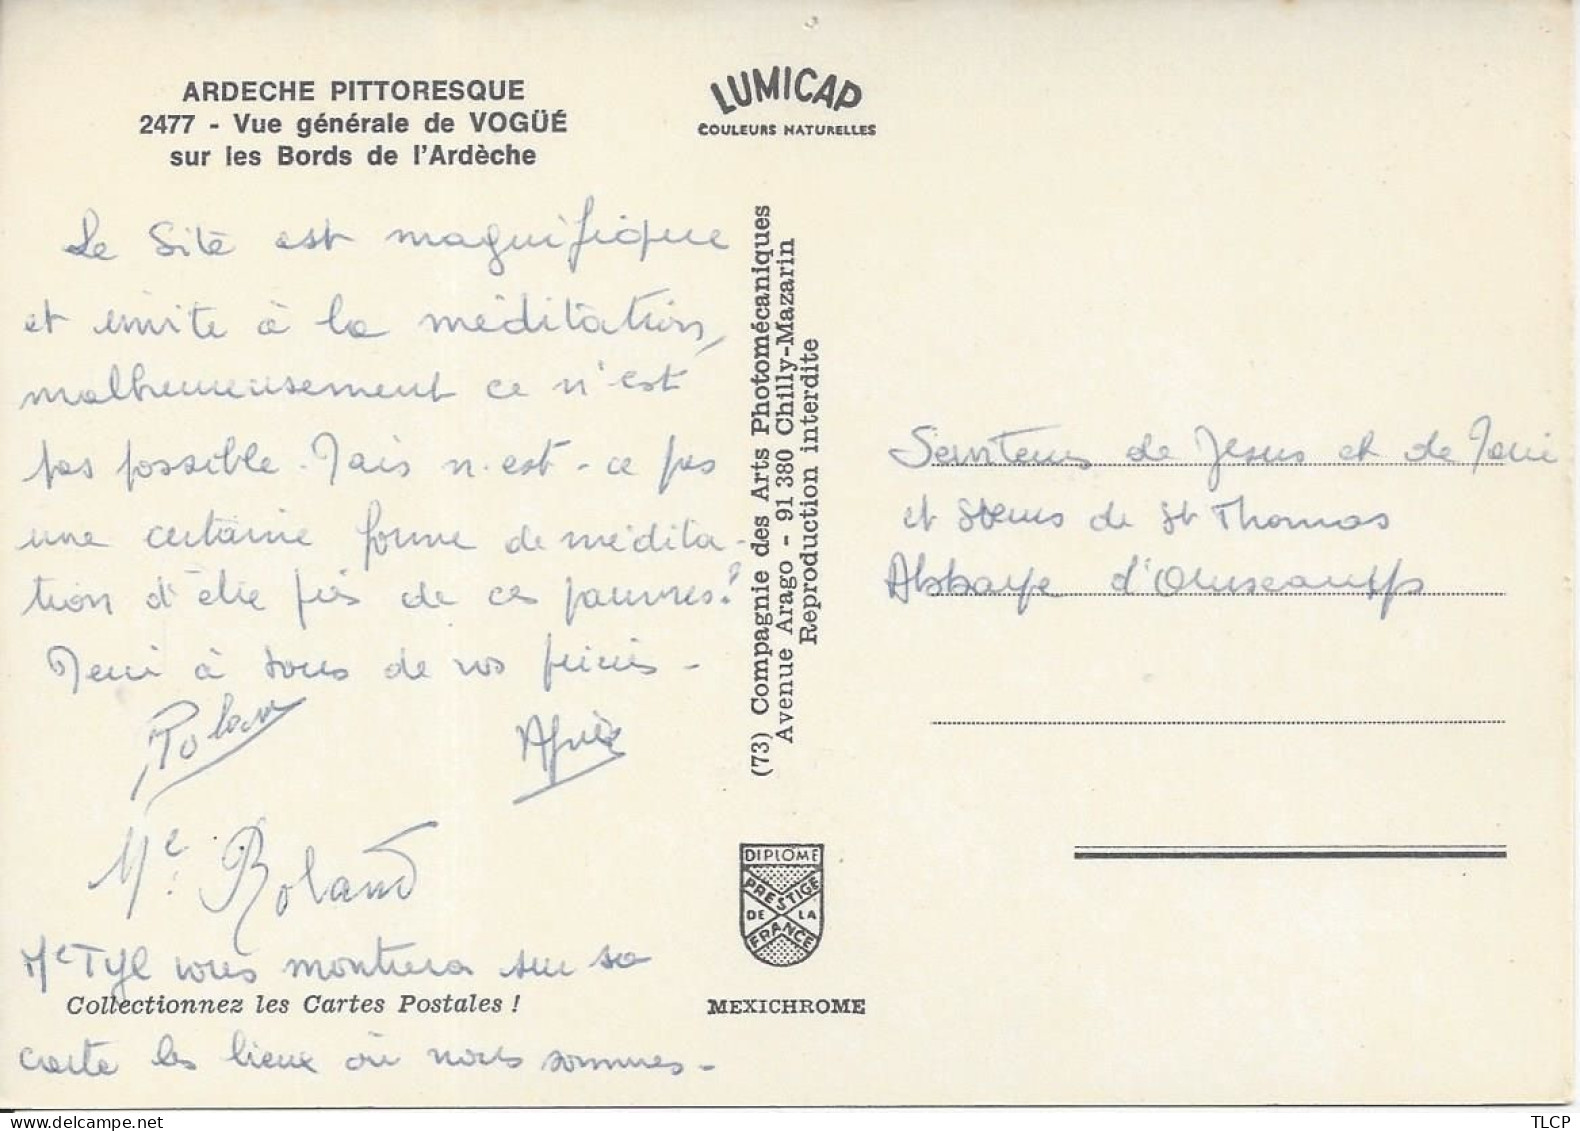 ARDECHE PITTORESQUE
2477 - Vue générale de VOGÜÉ
sur les Bords de l'Ardèche
Le Site est magnifique
et invite à la méditation,
malheureusement ce n'est
pas possible. Mais n'est-ce pas
une certaine forme de médita-
tion d'être près de ces pauvres?
Merci à tous de vos prières -
Roland
Agnès
Me Roland
Me Tyl vous montrera sur sa
Collectionnez les Cartes Postales !
carte les lieux où nous sommes -
LUMICAP
COULEURS NATURELLES
(73) Compagnie des Arts Photomécaniques
Avenue Arago - 91 380 Chilly-Mazarin
Reproduction interdite
DIPLOME
PRESTIGE
DE LA
FRANCE
MEXICHROME
Serviteurs de Jesus et de
et Sœurs de St Thomas
Abbaye d'Ourscamps
TLCP